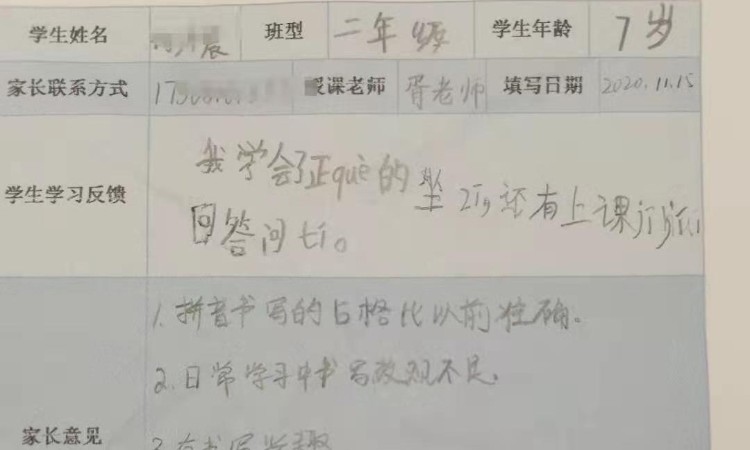 学生姓名 辰 班型 二年级 学生年龄 7岁
家长联系方式 授课老师 胥老师 填写日期 2020.11.15
学生学习反馈
我学会了正què的坐zī,还有上课jījí
回答问tí。
家长意见
1. 拼音书写的占格比以前准确。
2. 日常学习中书写改观不足。